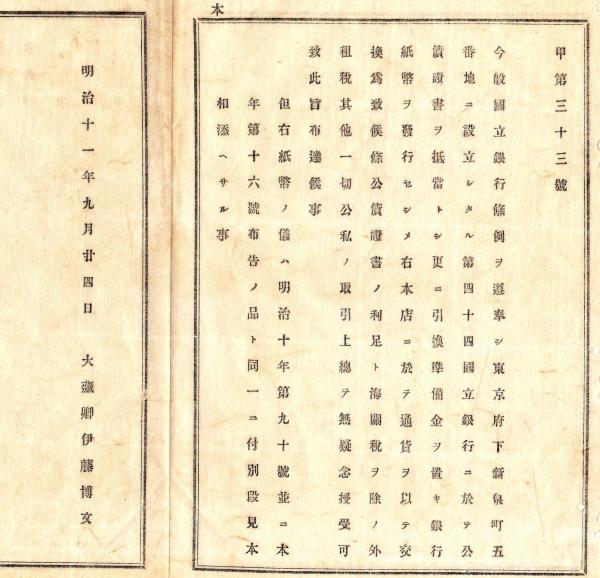 本
甲第三十三號
今般國立銀行條例ヲ遵奉シ東京府下新泉町五
番地ニ設立シタル第四十四國立銀行ニ於テ公
債證書ヲ抵當トシ更ニ引換準備金ヲ置キ銀行
紙幣ヲ發行セシメ右本店ニ於テ通貨ヲ以テ交
換爲致候條公債證書ノ利足ト海關稅ヲ除ノ外
租稅其他一切公私ノ取引上總テ無疑念授受可
致此旨布達候事
但右紙幣ノ儀ハ明治十年第九十號並ニ本
年第十六號布告ノ品ト同一ニ付別段見本
相添ヘサル事
明治十一年九月廿四日 大藏卿伊藤博文